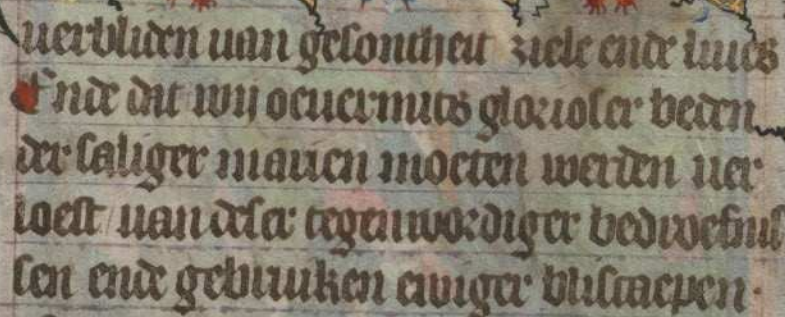 verbliden van gesontheit ziele ende liues
Ende dat wij oeuermits glorioser beden
der saliger marien moeten werden ver
loest van deser tegenwordiger bedroefnis
sen ende gebruiken ewiger bliscaepen.